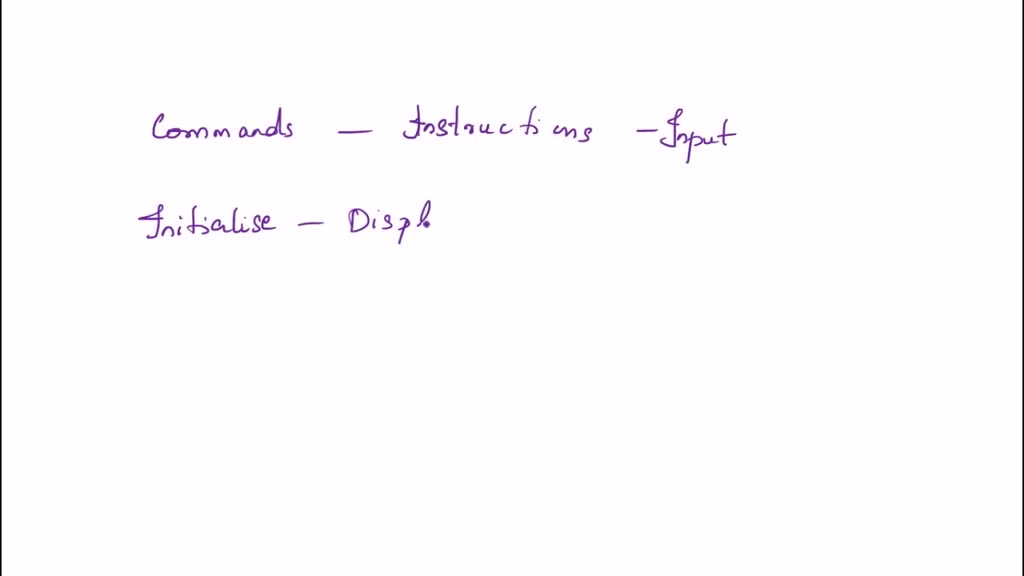 Commands — Instructions - Input
Initialise — Displ